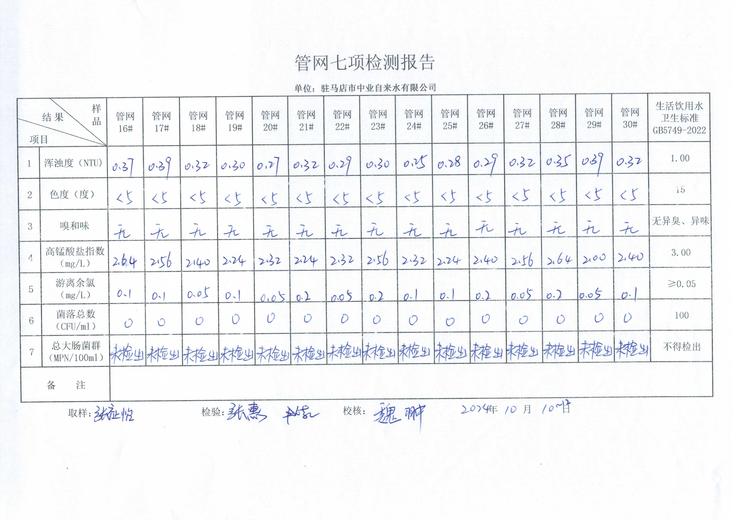 管网七项检测报告
单位：驻马店市中业自来水有限公司
结果 样品 项目 管网16# 管网17# 管网18# 管网19# 管网20# 管网21# 管网22# 管网23# 管网24# 管网25# 管网26# 管网27# 管网28# 管网29# 管网30# 生活饮用水卫生标准GB5749-2022
1 浑浊度(NTU) 0.37 0.39 0.32 0.30 0.27 0.32 0.29 0.30 0.25 0.28 0.29 0.32 0.35 0.39 0.32 1.00
2 色度（度） <5 <5 <5 <5 <5 <5 <5 <5 <5 <5 <5 <5 <5 <5 <5 15
3 嗅和味 无 无 无 无 无 无 无 无 无 无 无 无 无 无 无 无异臭、异味
4 高锰酸盐指数(mg/L) 2.64 2.56 2.40 2.24 2.32 2.24 2.32 2.56 2.32 2.24 2.40 2.56 2.64 2.00 2.40 3.00
5 游离余氯(mg/L) 0.1 0.1 0.05 0.1 0.05 0.2 0.05 0.2 0.1 0.1 0.2 0.05 0.2 0.05 0.1 ≥0.05
6 菌落总数(CFU/ml) 0 0 0 0 0 0 0 0 0 0 0 0 0 0 0 100
7 总大肠菌群(MPN/100ml) 未检出 未检出 未检出 未检出 未检出 未检出 未检出 未检出 未检出 未检出 未检出 未检出 未检出 未检出 未检出 不得检出
备 注
取样： 检验：张惠 校核：魏翀 2024年10月10日